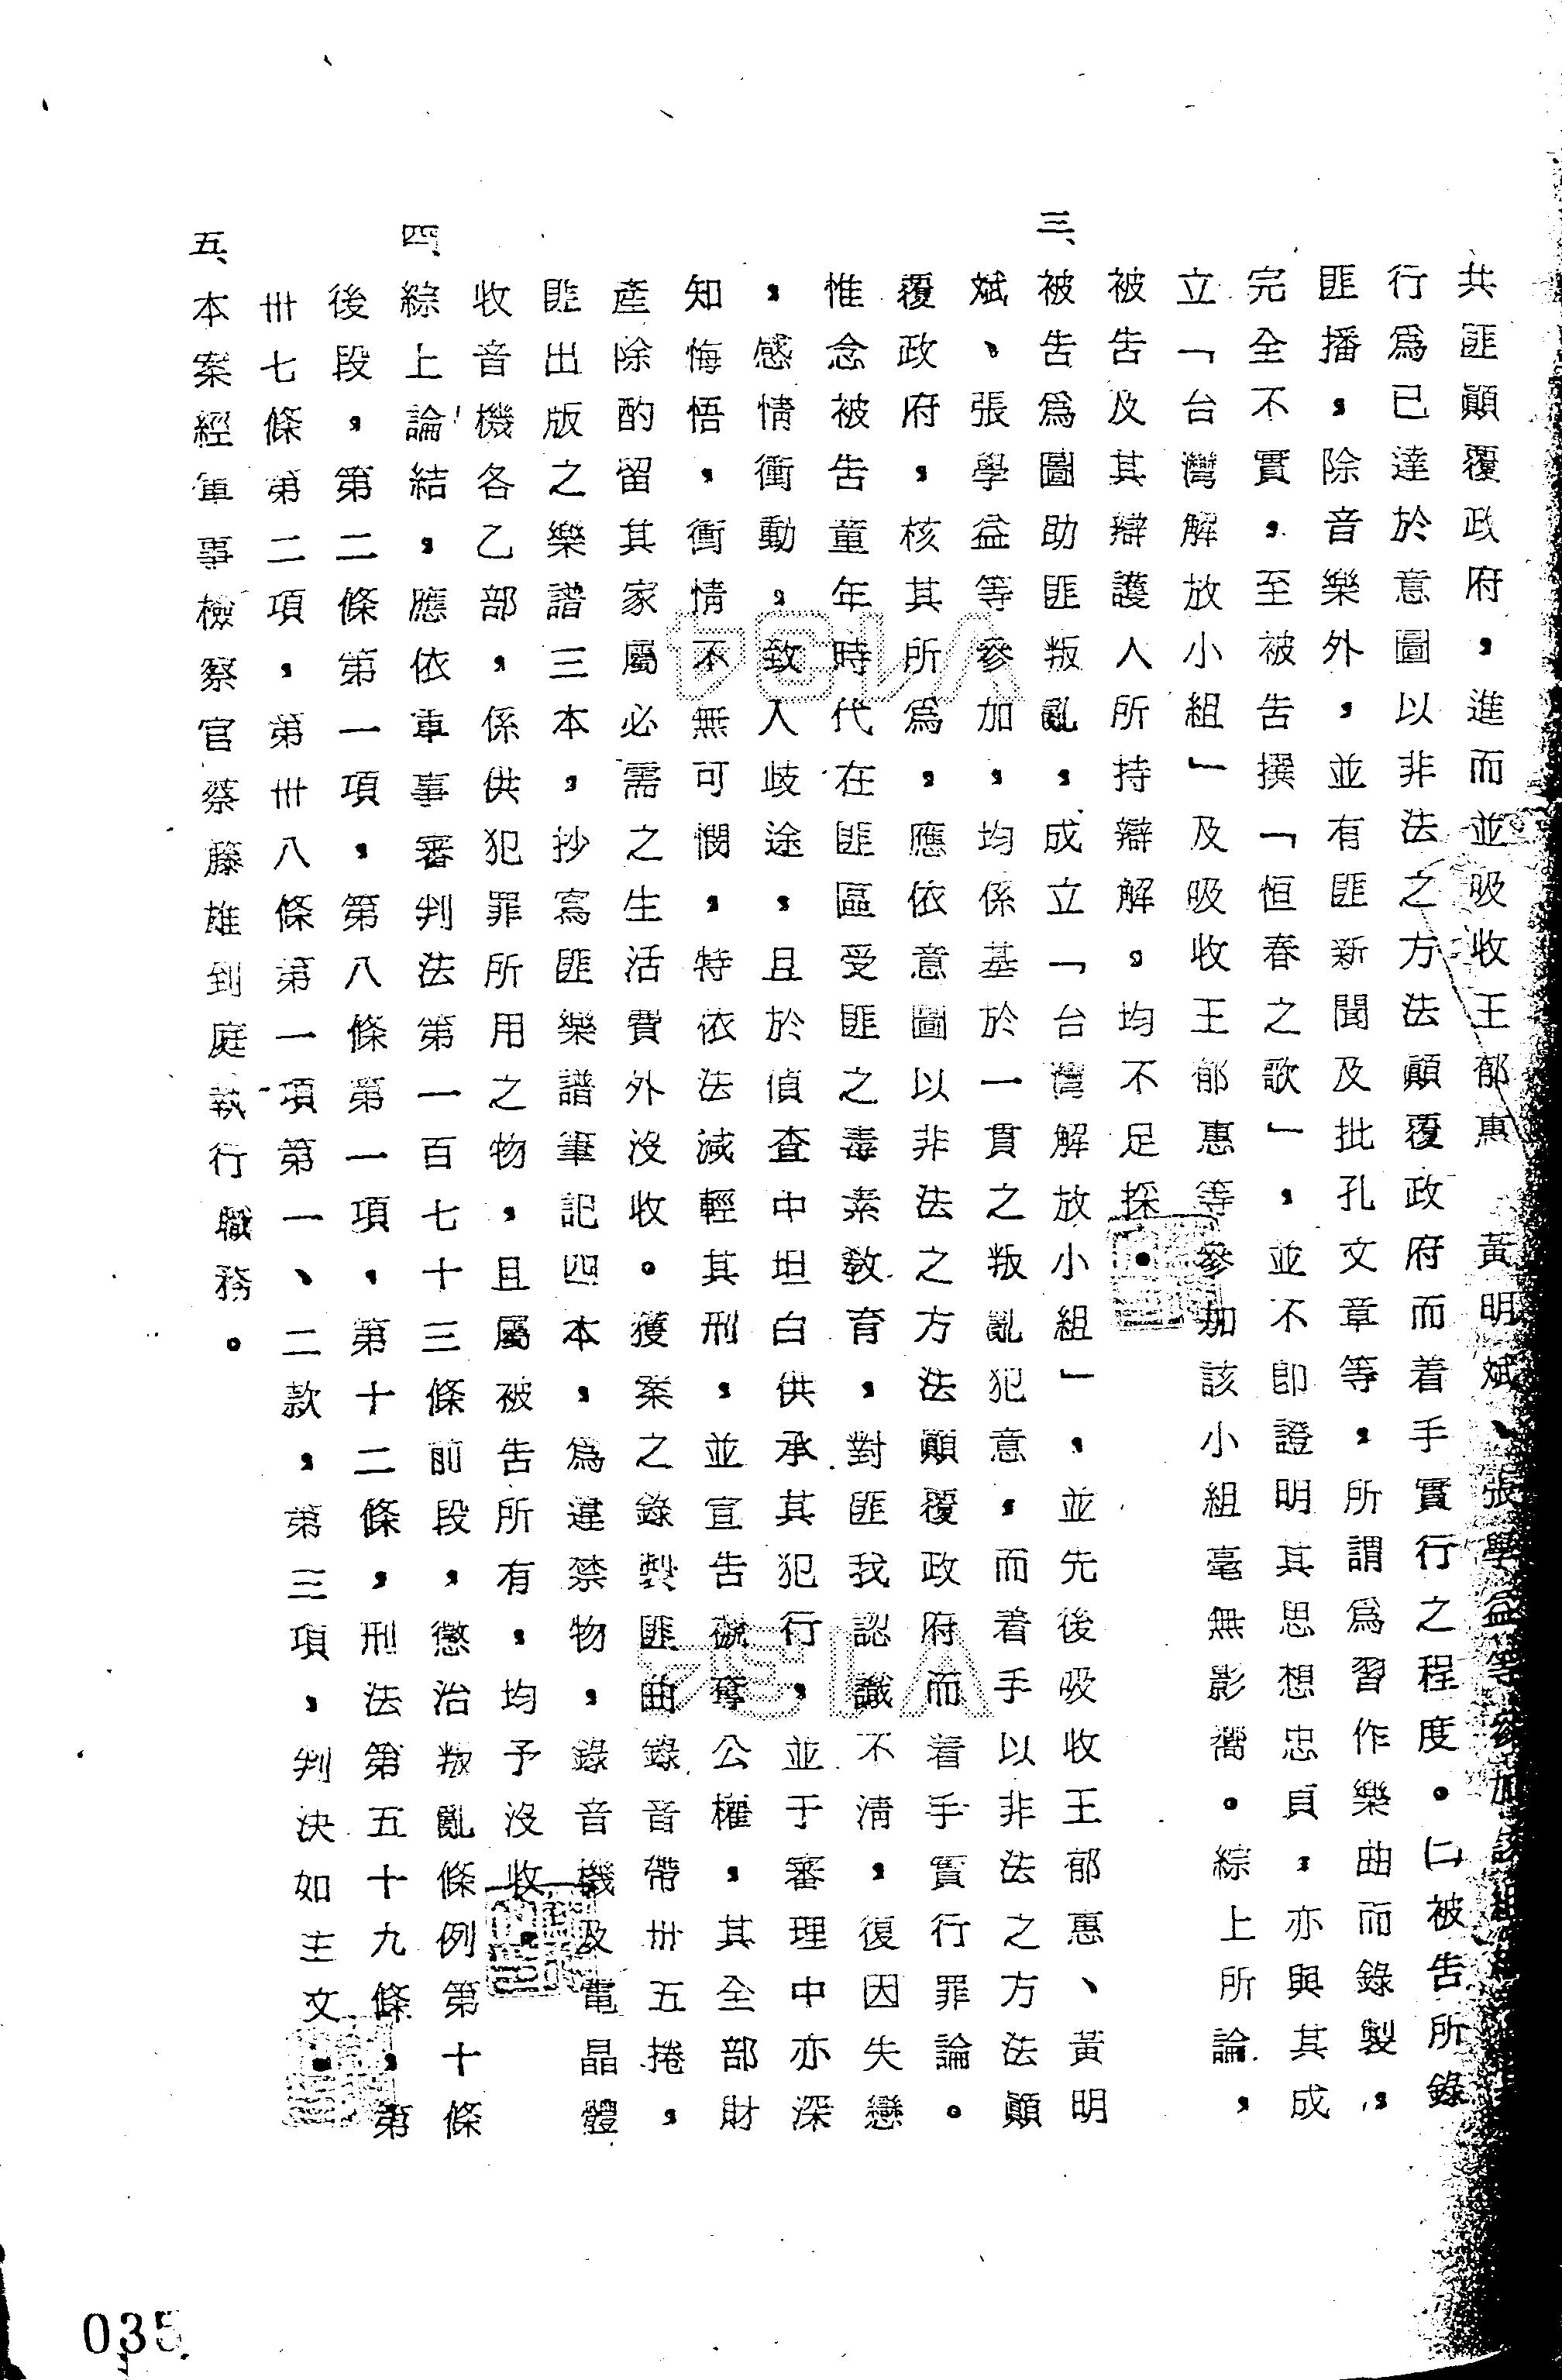 共匪顚覆政府，進而並吸收王郁惠　黃明斌、張學益等參加該組
行爲已達於意圖以非法之方法顚覆政府而着手實行之程度。㈡被告所錄
匪播，除音樂外，並有匪新聞及批孔文章等，所謂爲習作樂曲而錄製，
完全不實，至被告撰「恒春之歌」，並不卽證明其思想忠貞，亦與其成
立「台灣解放小組」及吸收王郁惠等參加該小組毫無影響。綜上所論，
被告及其辯護人所持辯解，均不足採。
三、被告爲圖助匪叛亂，成立「台灣解放小組」，並先後吸收王郁惠、黃明
斌、張學益等參加，均係基於一貫之叛亂犯意，而着手以非法之方法顚
覆政府，核其所爲，應依意圖以非法之方法顚覆政府而着手實行罪論。
惟念被告童年時代在匪區受匪之毒素敎育，對匪我認識不清，復因失戀
，感情衝動，致入歧途，且於偵查中坦白供承其犯行，並于審理中亦深
知悔悟，衝情不無可憫，特依法減輕其刑，並宣告褫奪公權，其全部財
產除酌留其家屬必需之生活費外沒收。獲案之錄製匪曲錄音帶卅五捲，
匪出版之樂譜三本，抄寫匪樂譜筆記四本，爲違禁物，錄音機及電晶體
收音機各乙部，係供犯罪所用之物，且屬被告所有，均予沒收。
四、綜上論結，應依軍事審判法第一百七十三條前段，懲治叛亂條例第十條
後段，第二條第一項，第八條第一項，第十二條，刑法第五十九條，第
卅七條第二項，第卅八條第一項第一、二款，第三項，判決如主文。
五、本案經軍事檢察官蔡藤雄到庭執行職務。
035